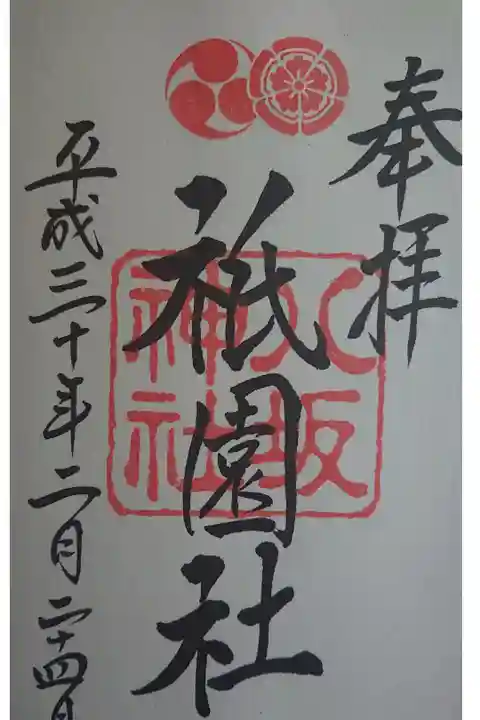 奉拝
八坂
神社
祇園社
平成三十年二月二十四日